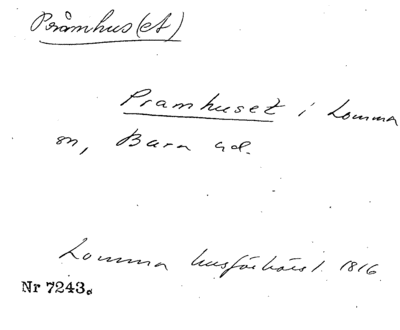 Pråmhus(et)
Pramhuset i Lomma
sn, Bara hd.
Lomma husförhörsl. 1816
Nr 7243.